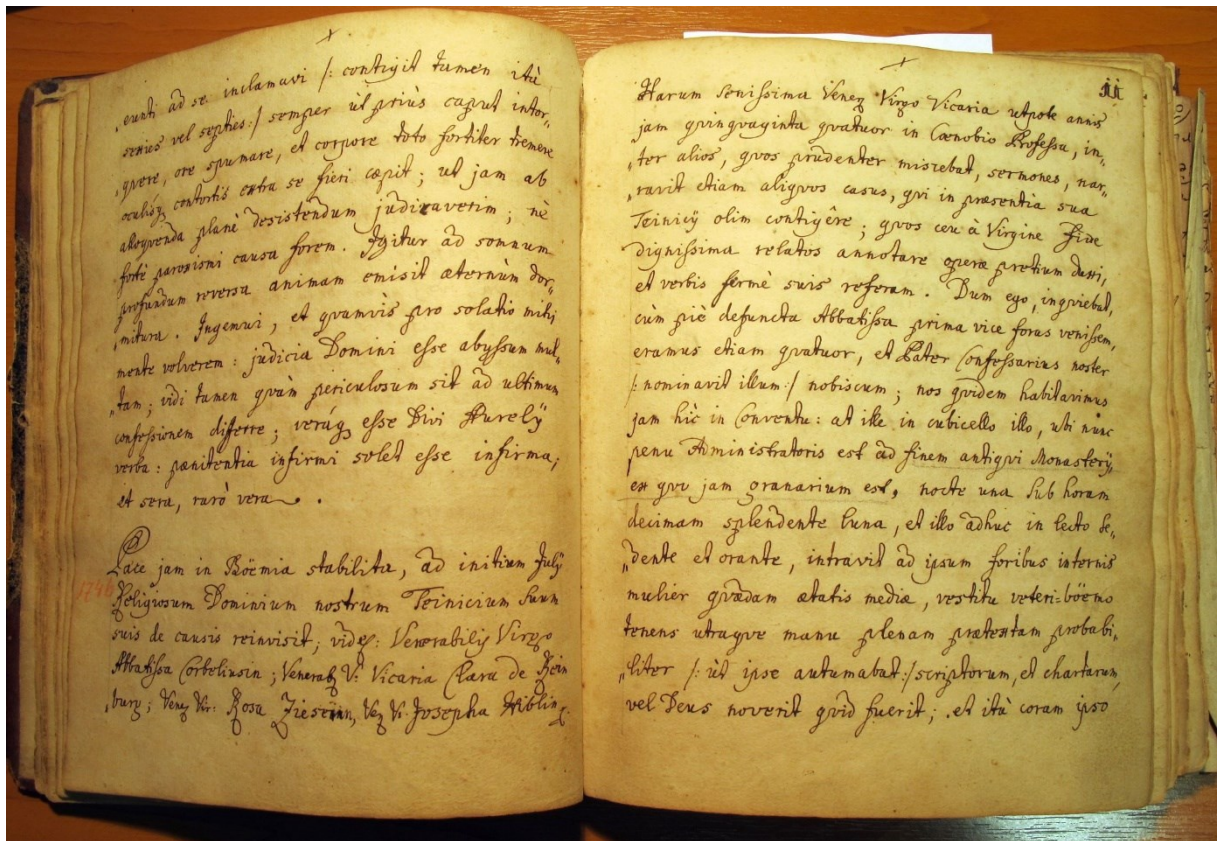 x
„eunti ad se inclamavi /: contigit tamen ità
sexies vel septies :/ semper ùt priùs caput intor„
„qvere, ore spumare, et corpore toto fortiter tremere
oculisq; contortis extra se fieri cæpit; ut jam ab
alloqvenda planè desistendum judicaverim; nè
fortè paroxismi causa forem. Igitur ad somnum
profundum reversa animam emisit æternùm dor„
„mitura. Ingemui, et qvamvìs pro solatio mihi
mente volverem: judicia Domini esse abyssum mul„
„tam; vidi tamen qvàm periculosum sit ad ultimum
confessionem differre; veráq; esse Divi Aurelÿ
verba: pænitentia infirmi solet esse infirma;
et sera, rarò vera.
Pace jam in Böemia stabilita, ad initium Julÿ
1746 Religiosum Dominium nostrum Teinicium suum
suis de causis reinvisit; videl: Venerabilis Virgo
Abbatissa Corbeliusin; Venerab V: Vicaria Clara de Rein
„burg; Ven Vir: Rosa Ziesein, Ven V: Josepha Hiblin
x
11
Harum Senissima Vener Virgo Vicaria utpote annis
jam qvinqvaginta qvatuor in Cænobio Professa, in„
„ter alios, qvos prudenter miscebat, sermones, nar„
„ravit etiam aliqvos casus, qvi in præsentia sua
Teinicÿ olim contigêre; qvos ceu à Virgine Fide
dignissima relatos annotare operæ pretium duxi,
et verbis fermè suis referam. Dum ego, inqviebat,
cùm piè defuncta Abbatissa prima vice foras venissem,
eramus etiam qvatuor, et Pater Confessarius noster
/: nominavit illum :/ nobiscum; nos qvidem habitavimus
jam hìc in Conventu: at ille in cubicello illo, ubi nunc
penu Administratoris est ad finem antiqvi Monasterÿ,
ex qvo jam granarium est, nocte una sub horam
decimam splendente luna, et illo adhuc in lecto se„
„dente et orante, intravit ad ipsum foribus internis
mulier qvædam ætatis mediæ, vestitu veteri=böemo
tenens utraqve manu plenam prætextam probabi„
„liter /: ùt ipse autumabat :/ scriptorum, et chartarum,
vel Deus noverit qvid fuerit; et ità coram ipso